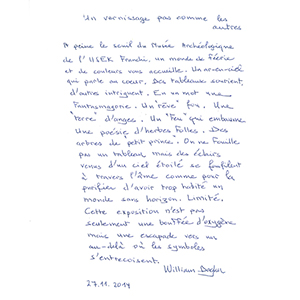 Un vernissage pas comme les
autres
A peine le seuil du Musée Archéologique
de l'USEK franchi, un monde de féérie
et de couleurs vous accueille. Un arc-en-ciel
qui parle au coeur. Des tableaux sourient,
d'autres intriguent. En un mot une
Fantasmagorie. Un "rêve" fou. Une
"Terre" d'anges. Un "Feu" qui embaume
Une poésie d'herbes folles. Des
arbres de petit prince. On ne fouille
pas un tableau mais des éclairs
venus d'un ciel étoilé se faufilent
à travers l'âme comme pour la
purifier d'avoir trop habité un
monde sans horizon. Limité.
Cette exposition n'est pas
seulement une bouffée d'oxygène
mais une escapade vers un
au-delà où les symboles
s'entrecroisent.
William
27.11.2019